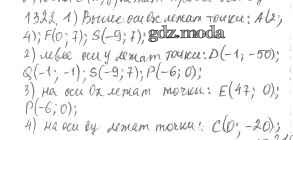 1322. 1) Выше оси x лежат точки: A(2;
4); F(0; 7); S(-9; 7); gdz.moda
2) левее оси y лежат точки: D(-1; -50);
Q(-1; -1); S(-9; 7); P(-6; 0);
3) на оси Ox лежат точки: E(47; 0);
P(-6; 0);
4) на оси Oy лежат точки: C(0; -20);